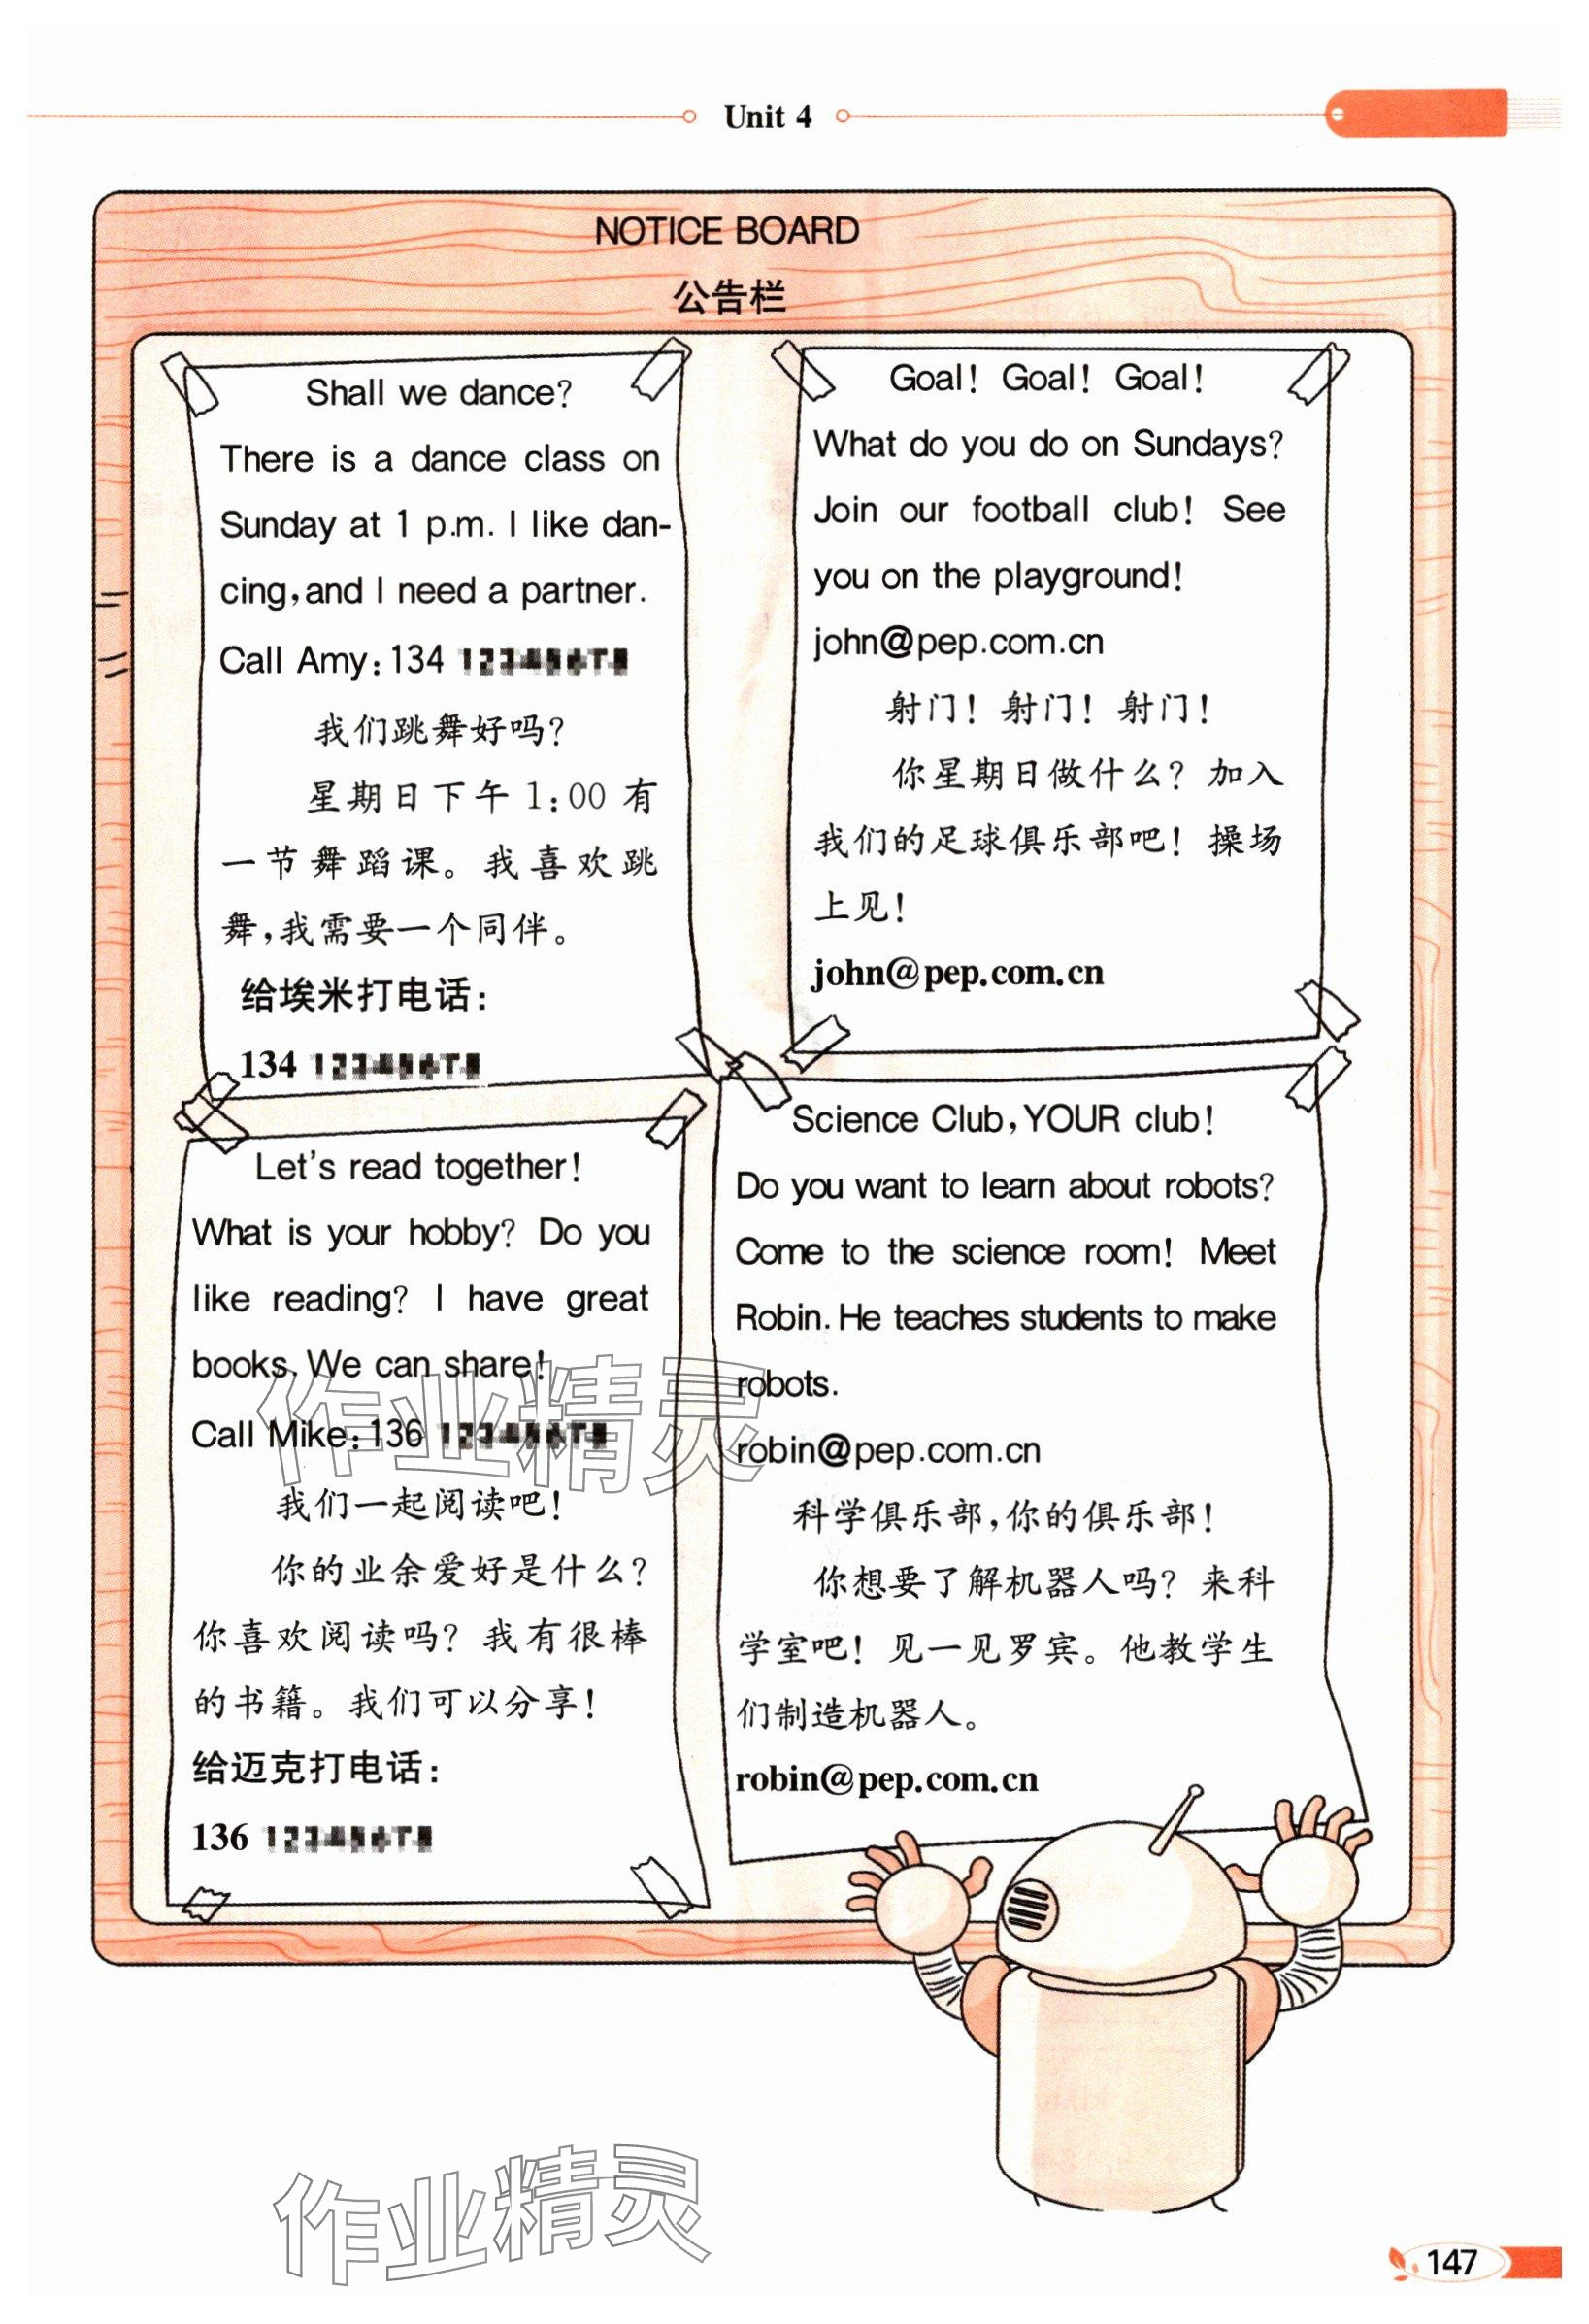 Unit 4
NOTICE BOARD
公告栏
Shall we dance?
There is a dance class on
Sunday at 1 p.m. I like dan-
cing, and I need a partner.
Call Amy: 134
我们跳舞好吗?
星期日下午 1:00 有
一节舞蹈课。我喜欢跳
舞,我需要一个同伴。
给埃米打电话:
134
Goal! Goal! Goal!
What do you do on Sundays?
Join our football club! See
you on the playground!
john@pep.com.cn
射门! 射门! 射门!
你星期日做什么? 加入
我们的足球俱乐部吧! 操场
上见!
john@pep.com.cn
Let's read together!
What is your hobby? Do you
like reading? I have great
books. We can share!
Call Mike: 136
我们一起阅读吧!
你的业余爱好是什么?
你喜欢阅读吗? 我有很棒
的书籍。我们可以分享!
给迈克打电话:
136
Science Club, YOUR club!
Do you want to learn about robots?
Come to the science room! Meet
Robin. He teaches students to make
robots.
robin@pep.com.cn
科学俱乐部,你的俱乐部!
你想要了解机器人吗? 来科
学室吧! 见一见罗宾。他教学生
们制造机器人。
robin@pep.com.cn
作业精灵
作业精灵
147